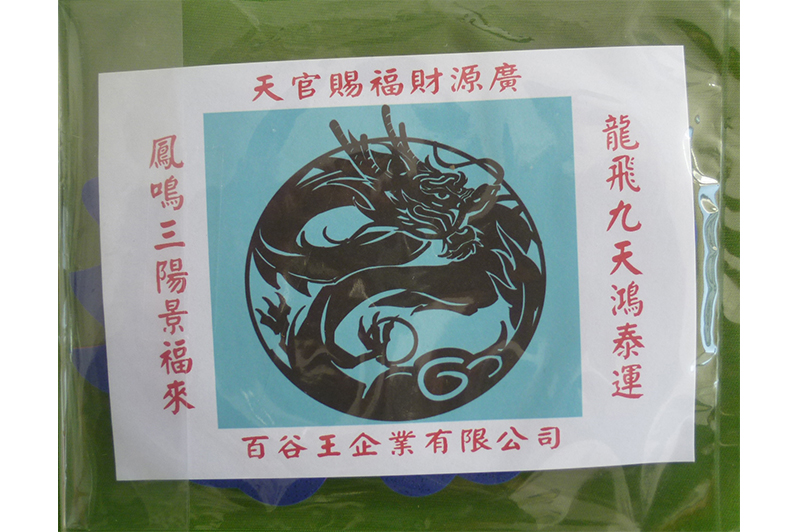 天官賜福財源廣
龍飛九天鴻泰運
鳳鳴三陽景福來
百谷王企業有限公司